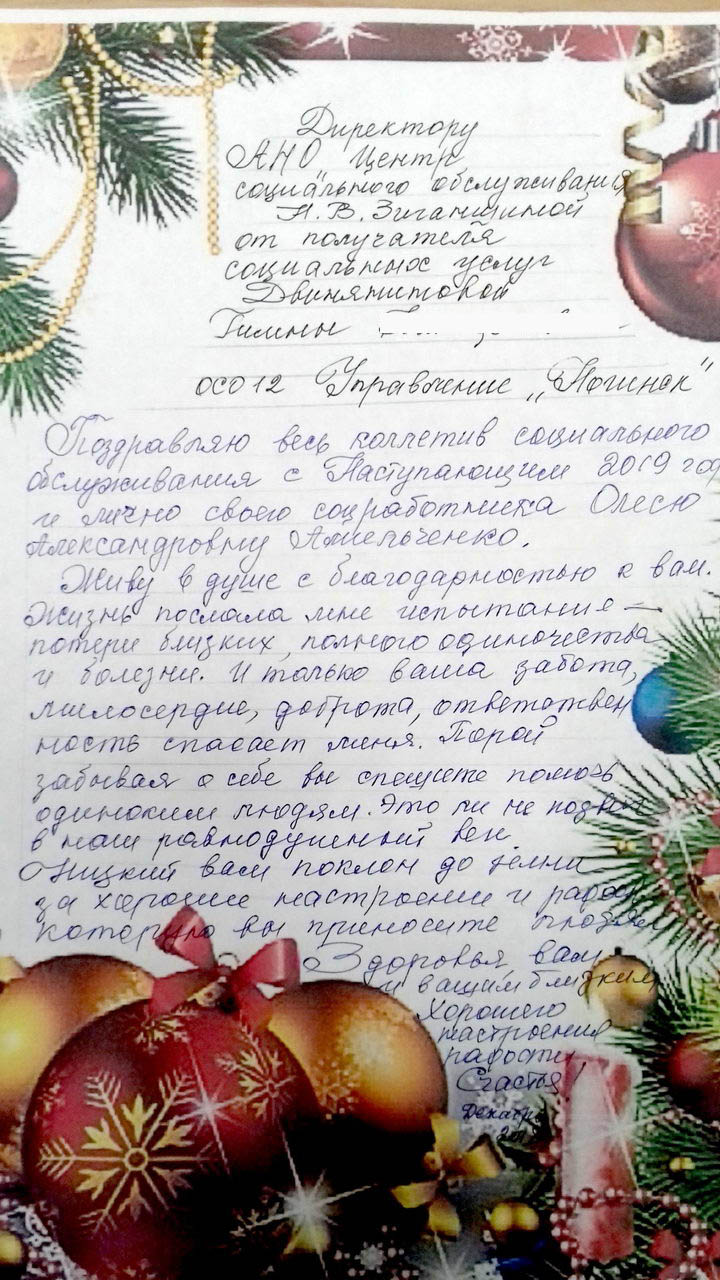 Директору
АНО Центр
социального обслуживания
Н.В. Зиганшиной
от получателя
социальных услуг
Двинянитовой
Галины
ОСО 12 Управление „Ногинск"
Поздравляю весь коллетив социального
обслуживания с Наступающим 2019 год
и лично своего соцработника Олесю
Александровну Амельченко.
Живу в душе с благодарностью к вам.
Жизнь послала мне испытания —
потери близких, полного одиночества
и болезни. И только ваша забота,
милосердие, доброта, ответствен
ность спасает меня. Порой
забывая о себе вы спешите помочь
одиноким людям. Это ли не подвиг
в наш равнодушный век.
Низкий вам поклон до земли
за хорошее настроение и радость
которую вы приносите людям
Здоровья вам
и вашим близким
Хорошего
настроения
радости
Счастья!
Декабрь